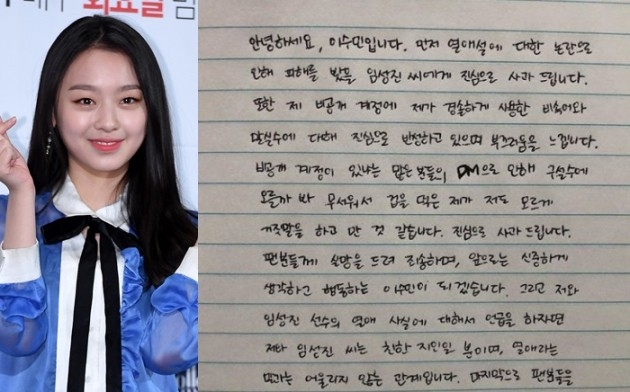 화요일 밤
안녕하세요, 이수민입니다. 먼저 열애설에 대한 논란으로
인해 피해를 받았을 임성진 씨에게 진심으로 사과 드립니다.
또한 제 비공개 계정에 제가 경솔하게 사용한 비속어와
말실수에 대해 진심으로 반성하고 있으며 부끄러움을 느낍니다.
비공개 계정이 있냐는 많은 분들의 DM으로 인해 구설수에
오를까 봐 무서워서 겁을 먹은 제가 저도 모르게
거짓말을 하고 만 것 같습니다. 진심으로 사과 드립니다.
팬분들께 실망을 드려 죄송하며, 앞으로는 신중하게
생각하고 행동하는 이수민이 되겠습니다. 그리고 저와
임성진 선수의 열애 사실에 대해서 언급을 하자면
저와 임성진 씨는 친한 지인일 뿐이며, 열애라는
말과는 어울리지 않는 관계입니다. 마지막으로 팬분들을